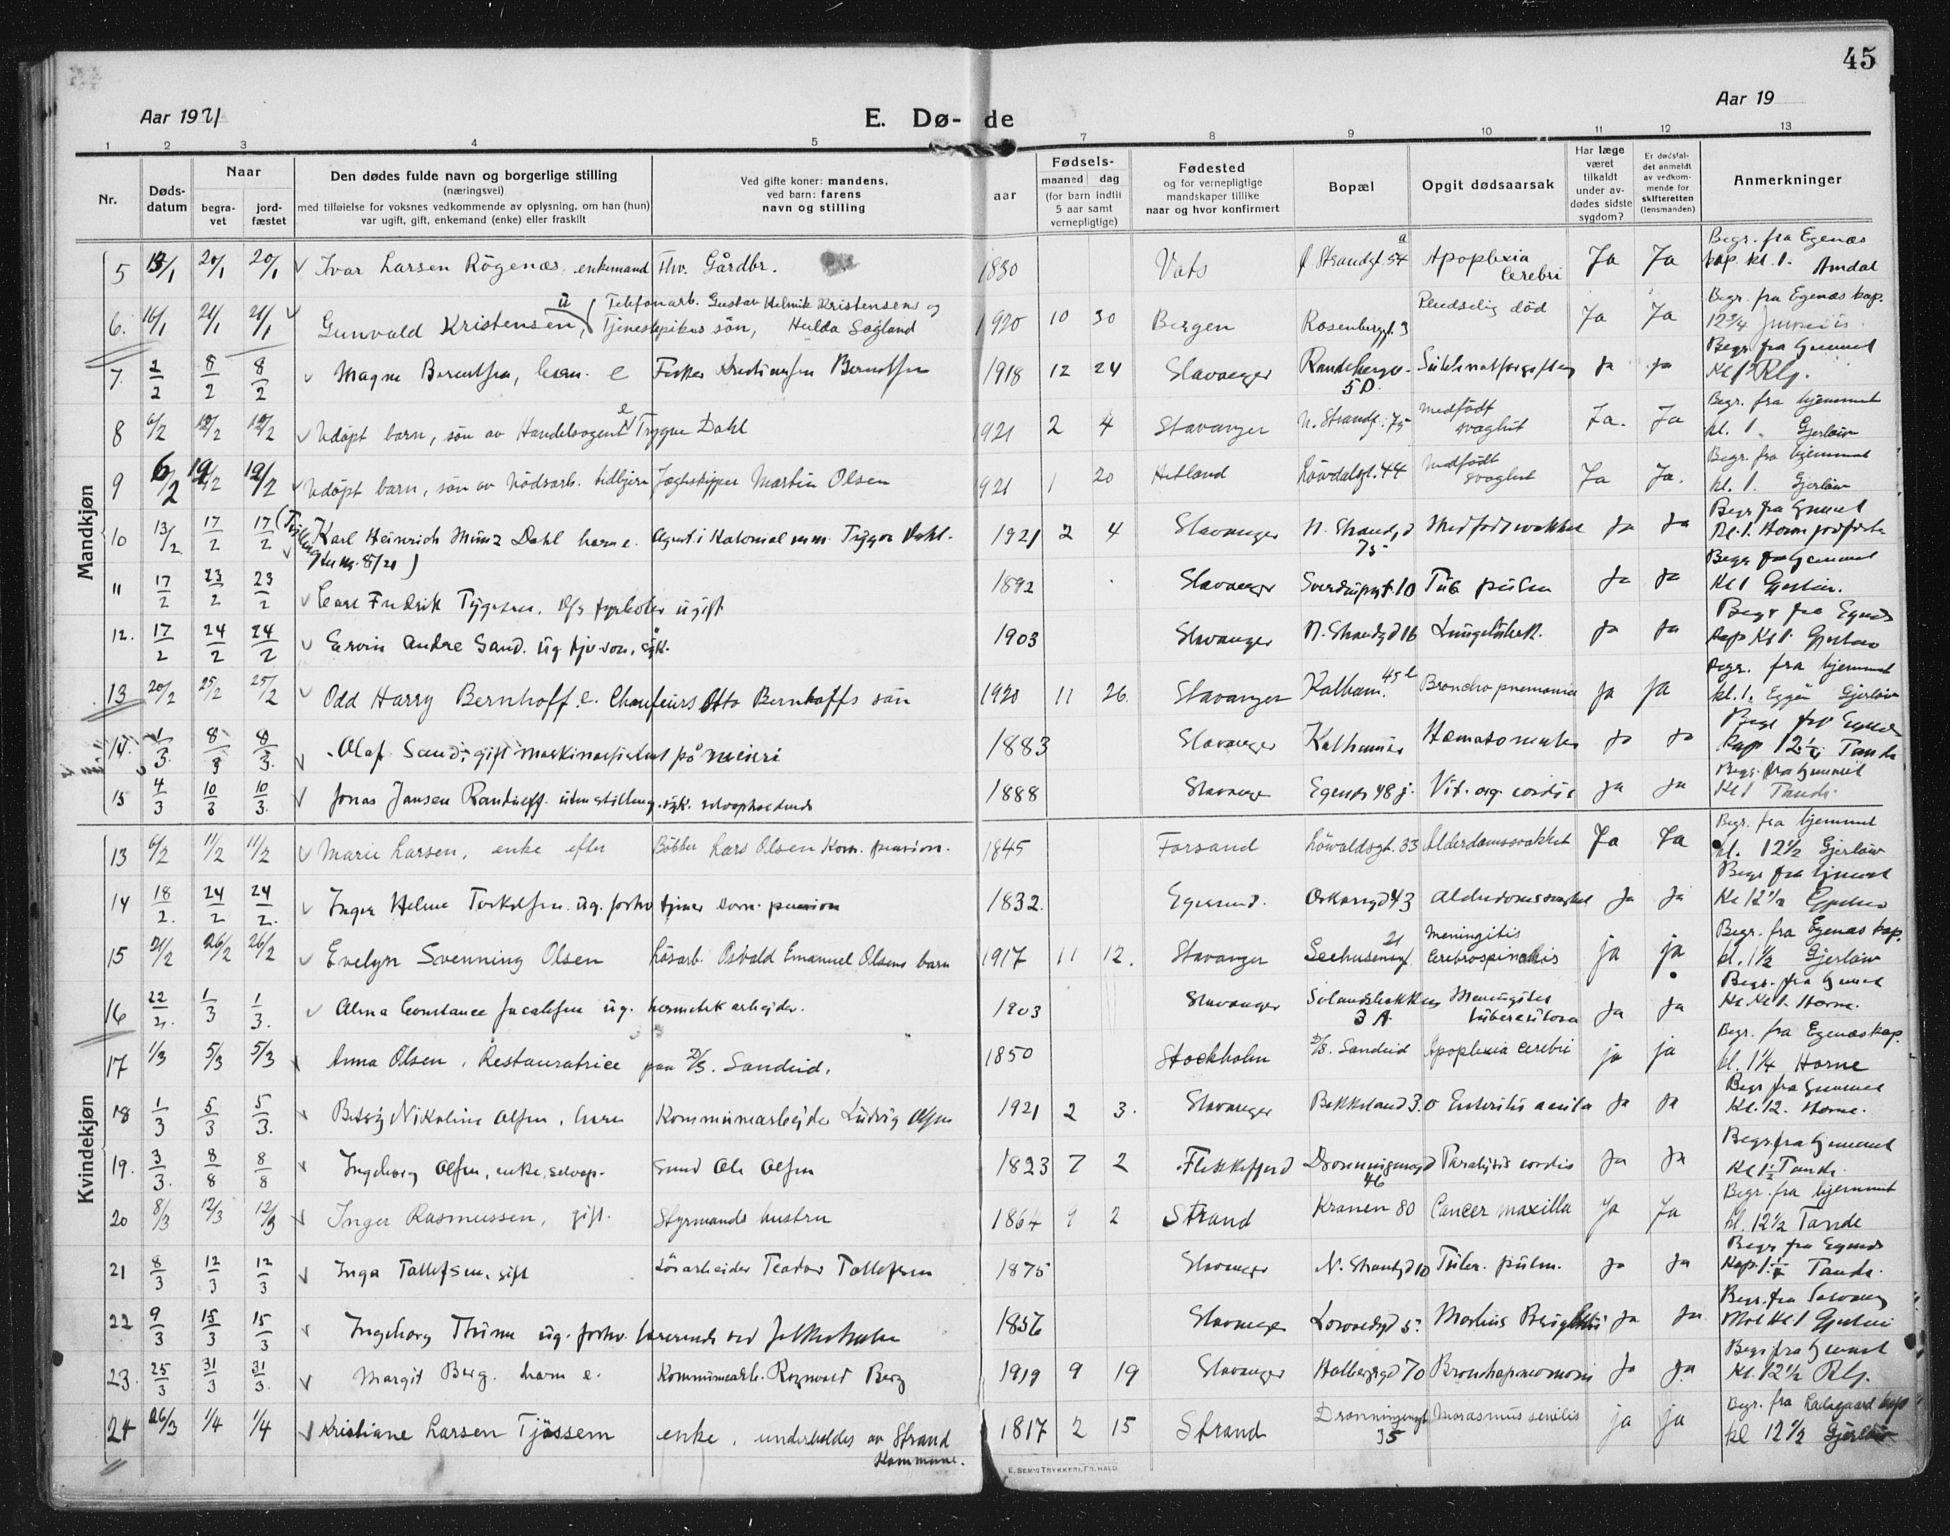 45
Aar 1921
E. Dø- de
Aar 19
1 2 3 4 5 7 8 9 10 11 12 13
Nr.
Døds-
datum
Naar
begra-
vet
jord-
fæstet
Den dødes fulde navn og borgerlige stilling
(næringsvei)
med tilføielse for voksnes vedkommende av oplysning, om han (hun)
var ugift, gift, enkemand (enke) eller fraskilt
Ved gifte koner: mandens,
ved barn: farens
navn og stilling
Fødsels-
aar
maaned dag
(for barn indtil
5 aar samt
vernepligtige)
Fødested
og for vernepligtige
mandskaper tillike
naar og hvor konfirmert
Bopæl
Opgit dødsaarsak
Har læge
været
tilkaldt
under av-
dødes sidste
sygdom?
Er dødsfal-
det anmeldt
av vedkom-
mende for
skifteretten
(lensmanden)
Anmerkninger
Mandkjøn
5 20/1 20/1 Ivar Larsen Rögenæs, enkemand Fhv. Gårdbr. 1830 Vats Strandgt. 54 a Apoplexia Cerebri Ja Ja Begr. fra Egenæs kap. kl. 1. Amdal
6. 16/1 21/1 21/1 Gunvald Kristensen, u Telefonarb. Gustav Helmik Kristensens og Tjenestepikes søn, Hulda Sagland 1920 10 30 Bergen Rosenberggt. 3 Pludselig död Ja Ja Begr. fra Egenæs kap. 12 3/4
7. 2/2 8/2 8/2 Magne Berentsen, barn. e Fisker Berentsen 1918 12 24 Stavanger 5 D. Ja Ja Begr. fra hjemmet Kl 1
8 6/2 12/2 12/2 Udøpt barn, søn av Handelsagent e Trygve Dahl 1921 2 4 Stavanger N. Strandg. 75 medfödt svaghet Ja. Ja Begr. fra hjemmet kl. 1. Gjerløw
9 6/2 19/2 19/2 Udøpt barn, søn av Nödsarb. tidligere Jægtskipper Martin Olsen 1921 1 20 Hetland Lövdalsgt. 44 medfödt svaghet Ja Ja. Begr. fra hjemmet kl. 1. Gjerløw
10 13/2 17/2 17/2 (Tvilling til Nr. 8/20) Karl Heinrich Münz Dahl barn e. Agent i Kolonial m.m. Tygve Dahl. 1921 2 4 Stavanger N. Strandgd 75 Medfødt svakhet Ja Ja Begr fra hjemmet Kl. 1 Horne
11 17/2 23/2 23/2 Carl Fredrik Tygesen, D/S fyrbøter ugift 1892 Stavanger Sverdrupsgt. 10 Tub pulm Ja Ja Begr fra hjemmet Kl 1 Gjerløw.
12. 17/2 24/2 24/2 Ervin Andre Sand. ug. 1903 Stavanger N. Strandgd 16 Ja Ja Begr fra Egenæs Kap Kl 1. Gjerløw
13 20/2 25/2 25/2 Odd Harry Bernhoff. e. Chauffeurs Otto Bernhoffs sön 1920 11 26. Stavanger Kalham. 45 b Broncho pnemonia Ja Ja Begr. fra hjemmet kl. 1. Gjerløw
14. 1/3 8/3 8/3 Olaf Sand; gift maskinassistent på meieri 1883 Stavanger Ja Ja Begr fra Egenæs Kap Tande
15 4/3 10/3 10/3 Jonas Jansen uten stilling, syk. selvopholdende 1888 Stavanger Egenæs 48 j. Vit. org. cordis Ja Ja Begr. fra hjemmet Kl 1 Tande.
Kvindekjøn
13 6/2 11/2 11/2 Marie Larsen, enke efter Bökker Lars Olsen Kom. pension. 1845 Forsand Lövoldsgt. 33 Alderdomssvakhet Ja Ja Begr. fra hjemmet kl. 12 1/2 Gjerløw
14 18/2. 24/2 24/2. Inger Helene Torkelsen. ug. forhv tjener kom. pension 1832. Egersund. Oskarsgd 43 Alderdomssvakhet Ja Ja Begr fra hjemmet Kl 12 1/2 Gjerløw
15 21/2 26/2 26/2 Evelyn Svenning Olsen Lösarb. Osvald Emanuel Olsens barn 1917 11 12. Stavanger Seehusensg 21 Meningitis Cerebrospinalis ja ja Begr. fra Egenæs kap. kl. 1 1/2 Gjerløw
16 22/2. 1/3 1/3. Alma Constance Jacobsen ug. hermetikarbejder. 1903 Stavanger Solandsbakken 3 A. Meningitis tuberculosa Ja Ja Begr. fra hjemmet Kl. 1. Horne.
17 1/3 5/3 5/3 Anna Olsen, Restauratrice paa D/S. Sandeid. 1850 Stockholm D/S. Sandeid Apoplexia cerebri ja ja Begr. fra Egenæs kap. kl. 1 1/4 Horne
18 1/3 5/3 5/3. Betsy Nikoline Olsen, barn Kommunearbejder Ludvig Olsen 1921 2 3. Stavanger Bakkeland 30 Enteritis acuta Ja Ja Begr fra hjemmet Kl. 12. Horne.
19. 3/3. 8/8 8/8 Ingeborg Olsen, enke, selvop. Smed Ole Olsen 1823 7 2 Flekkefjord Dronningensgd 46 Paralysis cordis Ja Ja Begr. fra hjemmet Kl 1 1/2 Tande.
20 8/3 12/3 12/3 Inger Rasmussen, gift. Styrmands hustru 1864 9 2 Strand Kranen 80 Cancer maxilla Ja Ja Begr. fra hjemmet kl. 12 1/2 Tande
21 8/3 12/3 12/3 Inga Tollefsen, gift Lösarbeider Teodor Tollefsen 1875 Stavanger N. Strandgd 10 Tuber. pulm. Ja Ja Begr fra Egenæs Kap. Tande.
22 9/3 15/3 15/3 Ingeborg Thime ug. forhv. lærerinde ved folkeskolen 1856 Stavanger 5. Morbus Brightii Ja Ja Begr. fra Kl 1 Gjerløw
23. 25/3 31/3 31/3. Margit Berg. barn e. Kommunearb. Rognvald Berg 1919 9 19 Stavanger Holbergsgd 70 Bronchopneumoni Ja Ja Begr fra hjemmet Kl. 12 1/2
24 26/3 1/4 1/4 Kristiane Larsen Tjössem enke, underholdes av Strand Kommune. 1817 2 15 Strand Dronningensgt 35 Marasmus senilis ja ja Begr. fra Ladegaard kap kl 12 1/2 Gjerløw
E. SEM'S TRYKKERI, FR.HALD